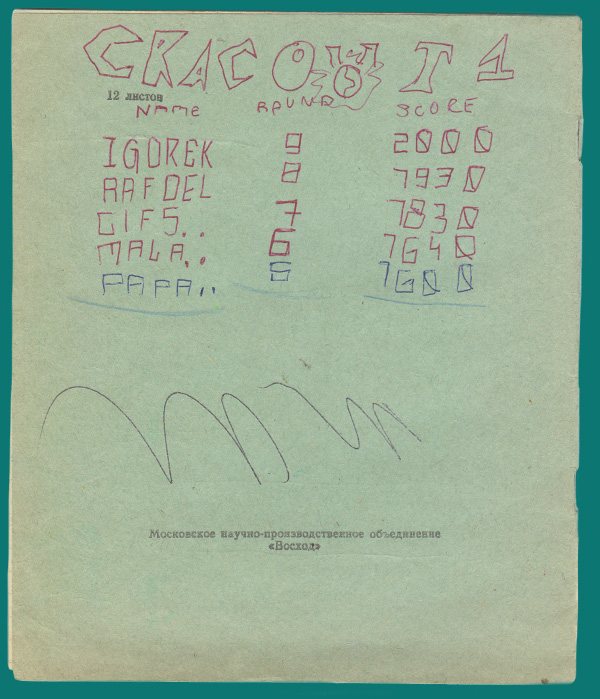 CRAC O T 1
12 листов
NAME ROUND SCORE
IGOREK 9 2000
RAFOEL 8 7930
GIFS.. 7 7830
MALA.. 6 7640
PAPA.. 5 7600
Московское научно-производственное объединение
«Восход»